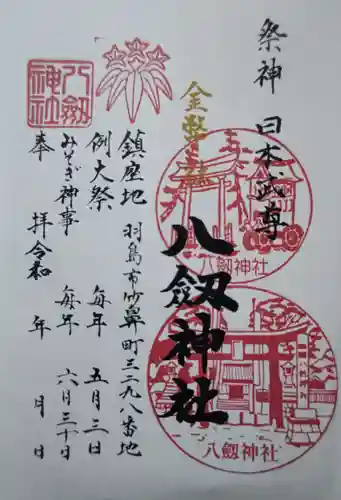 祭神 日本武尊
金幣社
八劔神社
鎮座地 羽島市竹鼻町三二九八番地
例大祭 毎年 五月三日
みそぎ神事 毎年 六月三十日
奉拝 令和 年 月 日
八劔神社
八劔神社
八劔神社